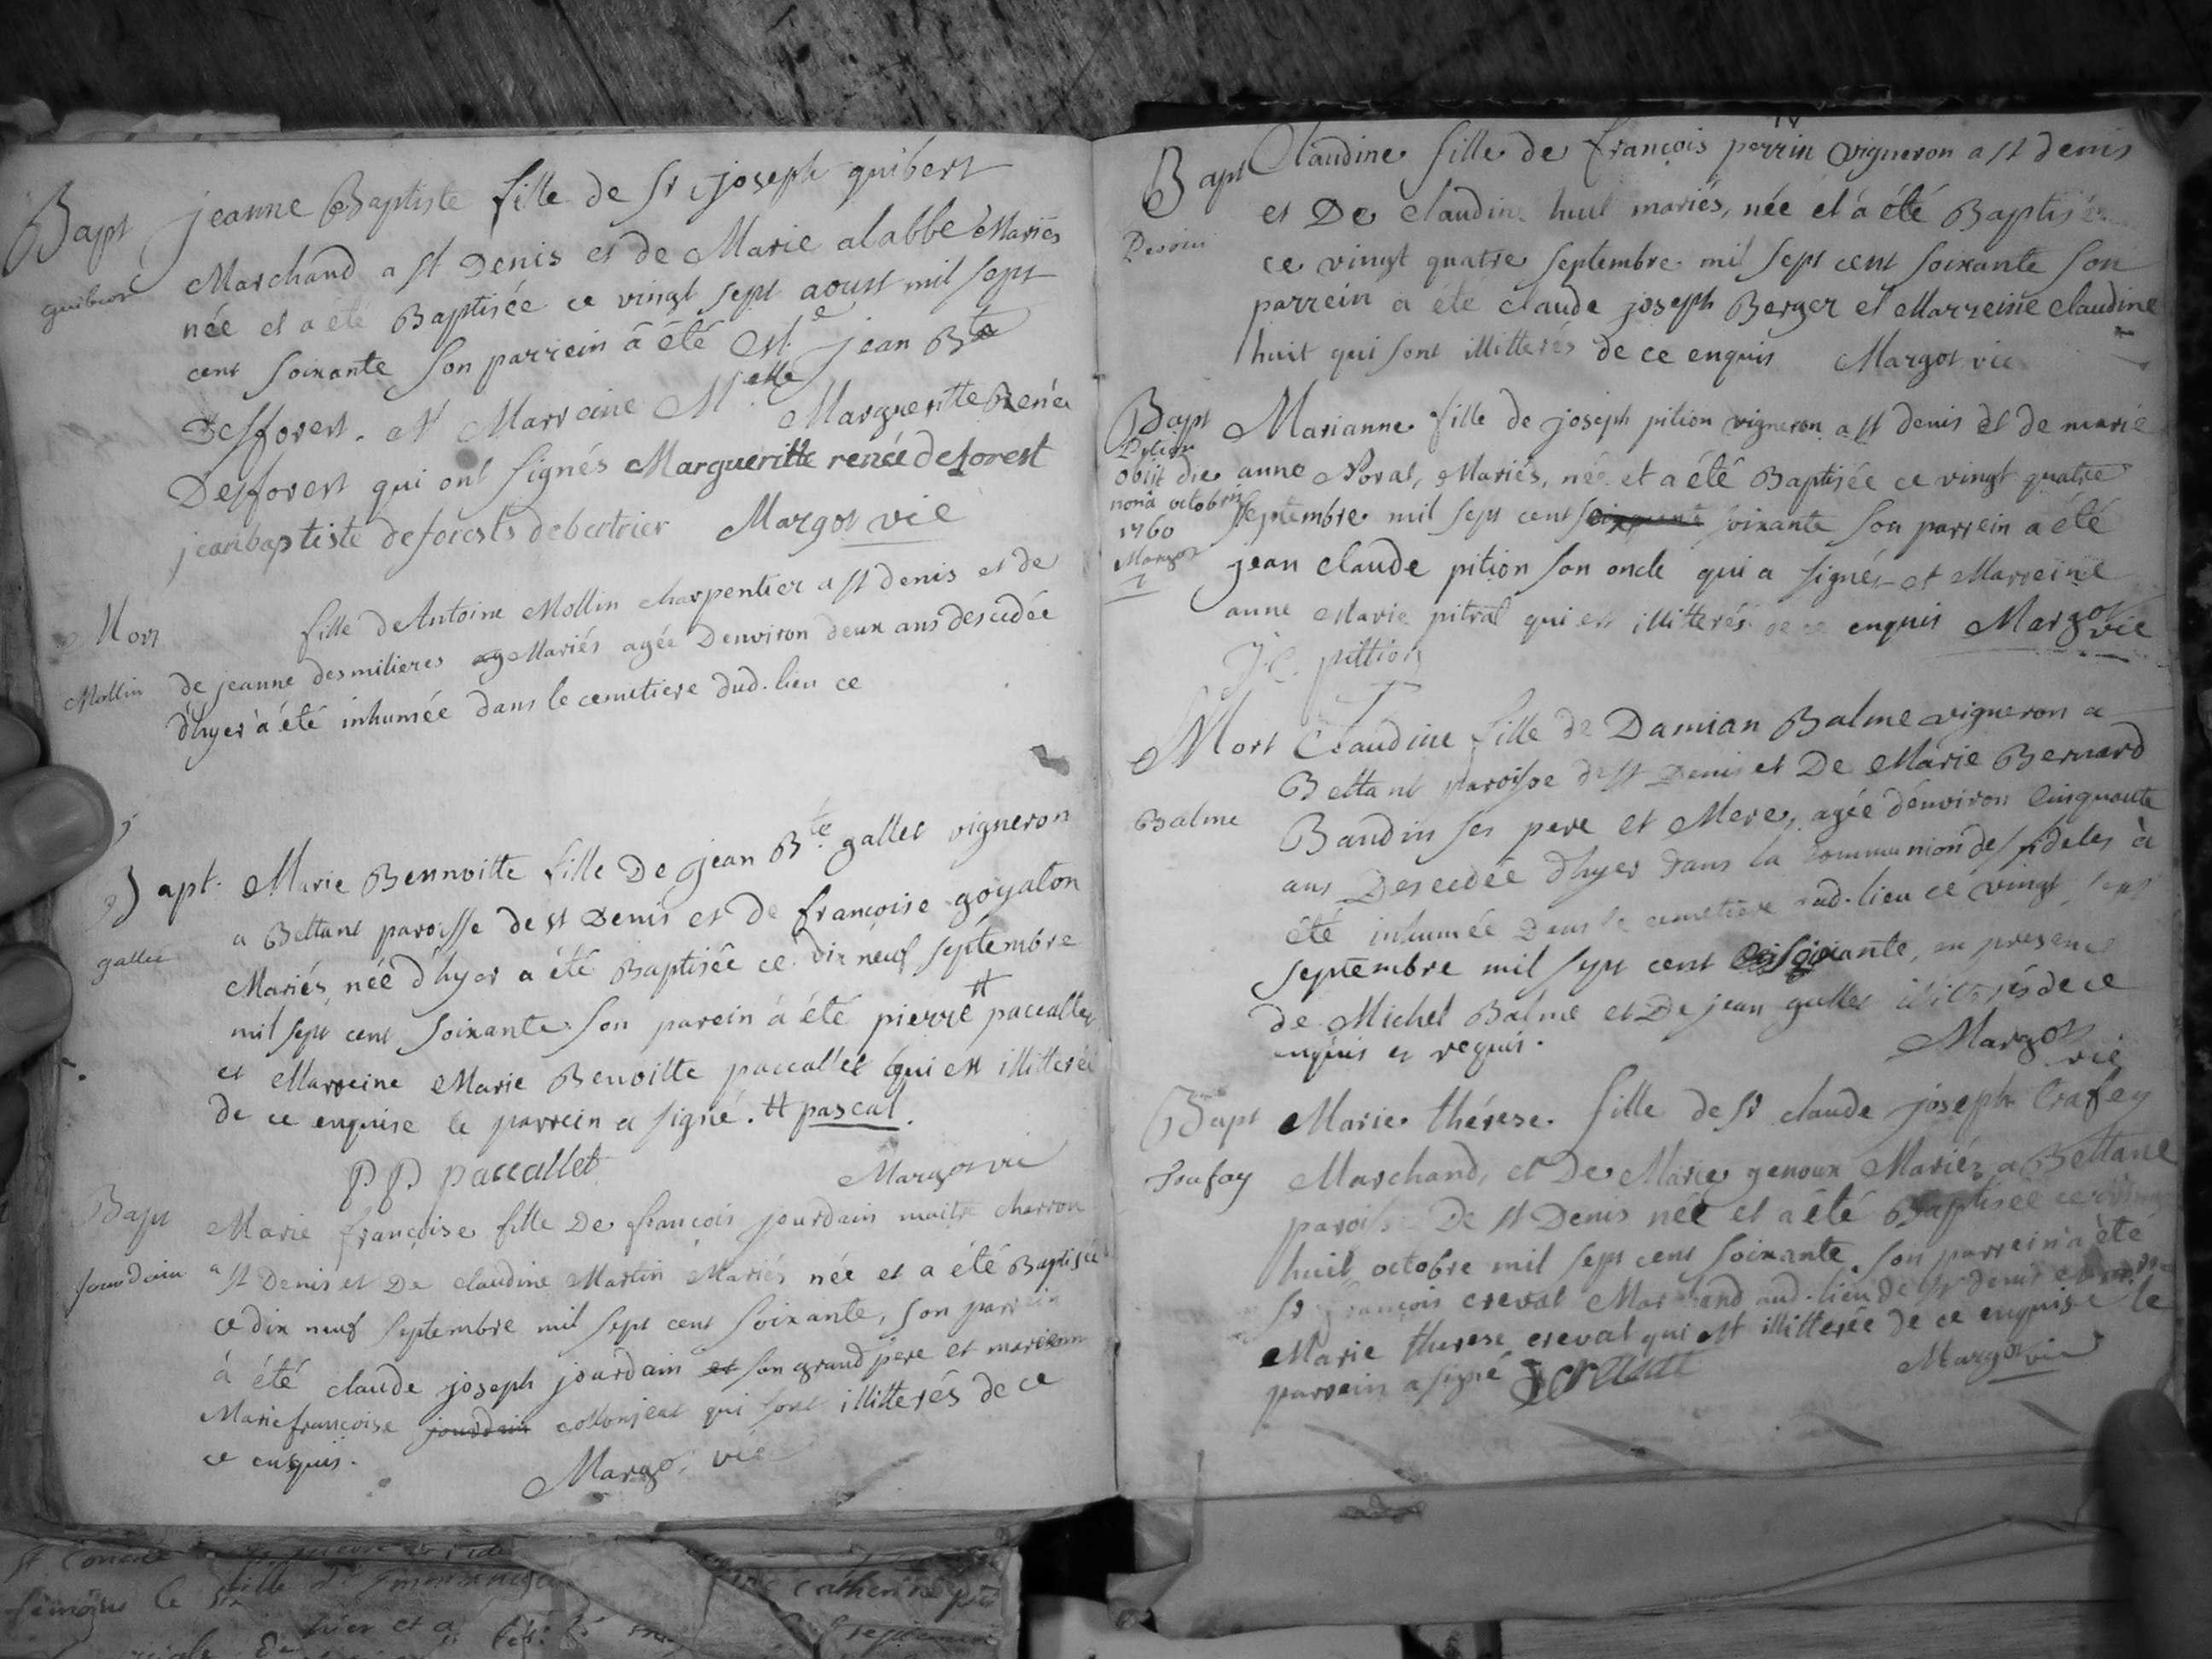 Bapt jeanne Baptiste fille de sr joseph guibert
guibert Marchand a st Denis et de Marie alabbe Mariés
née et a été Baptisée ce vingt sept aoust mil sept
cent soixante son parrein à été Mr jean Bte
Desforest. et Marreine Melle Margueritte Renée
Desforest qui ont signés Margueritte renée deforest
jean baptiste deforests debertrier Margot vic
Mort fille de Antoine Mollin charpentier a st denis et de
Mollin de jeanne desmilieres ag Mariés agée Denviron deux ans descedée
d'hyer à été inhumée dans le cemetiere dud. lieu ce
Bapt. Marie Bennoitte fille De jean Bte. gallet vigneron
gallet a Bettant paroisse de st Denis et de françoise goyaton
Mariés, née d'hyer a été Baptisée ce dix neuf septembre
mil sept cent soixante son parein à été pierre # paccallet
et Marreine Marie Benoitte paccallet qui est illitterée
de ce enquise le parrein a signé. # pascal.
P P paccallet Margot vic
Bapt Marie françoise fille De françois jourdain maitre charron
jourdain a st Denis et De claudine Martin Mariés née et a été Baptisée
ce dix neuf septembre mil sept cent soixante, son parrein
à été claude joseph jourdain et son grand pere et
Marie françoise jourdain qui sont illitterés de ce
ce enquis. Margot vic
Bapt Claudine fille de françois perrin vigneron a st denis
et De claudine huit mariés, née et à été Baptisée
Perrin ce vingt quatre septembre mil sept cent soixante son
parrein a été claude joseph Berger et Marreine claudine
huit qui sont illitterés de ce enquis Margot vic
Bapt Marianne fille de joseph pition vigneron a st denis et de marie
Pition
obiit die anne Noval, Mariés, née et a été Baptisée ce vingt quatre
nona octobris septembre mil sept cent soixante soixante son parrein a été
1760
Margot jean claude pition son oncle qui a signé et Marreine
anne Marie pitral qui est illitterés de ce enquis Margot vic
J.C. pittion
Mort Claudine fille de Damian Balme vigneron a
Bettant paroisse de st Denis et De Marie Bernard
Balme Baudin ses pere et Mere, agée d'environ Cinquante
ans Descedée d'hyer dans la communion des fideles à
été inhumée Dans le cemetiere dud. lieu ce vingt sept
septembre mil sept cent soixante, en presence
de Michel Balme et De jean gallet illitterés de ce
enquis et requis. Margot vic
Bapt Marie thérese fille de sr claude joseph trafey
trafay Marchand, et De Marie genoux Mariés a Bettant
paroisse De st Denis née et a été Baptisée ce vingt
huit octobre mil sept cent soixante. son parrein à été
sr françois creval Marchand aud. lieu de st denis et
Marie therese creval qui est illitterée de ce enquise le
parrein a signé Margot vic